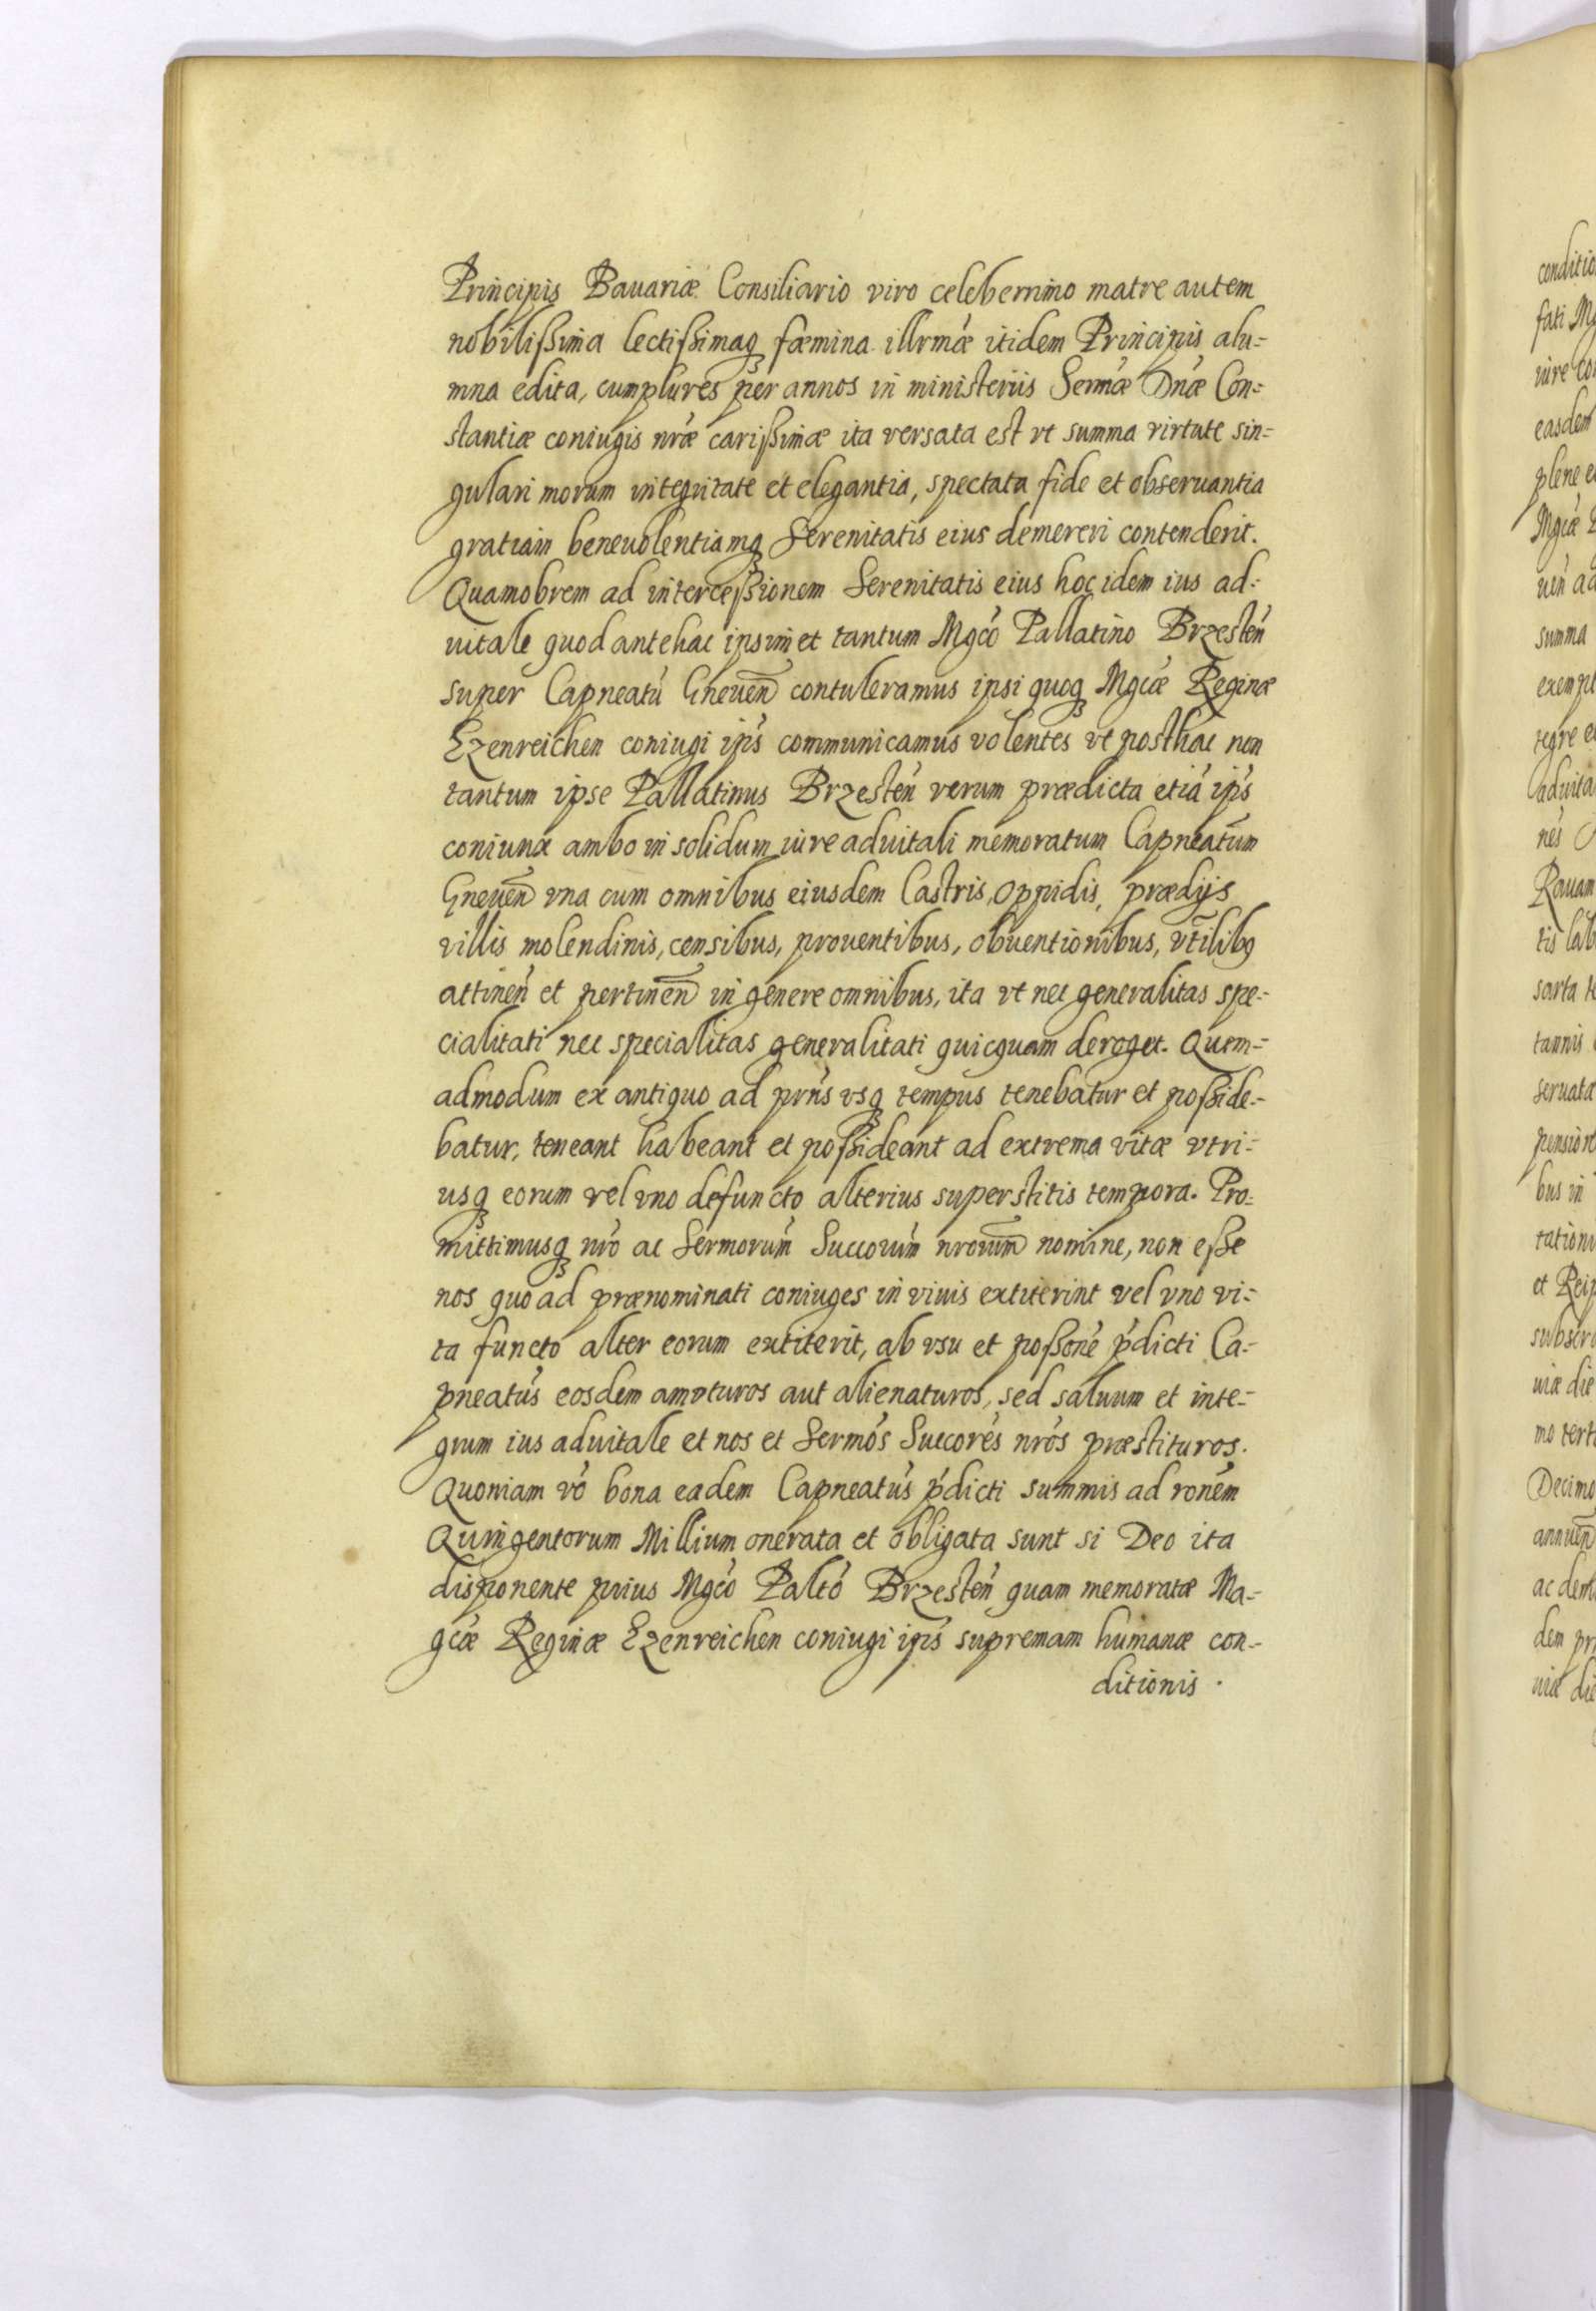 Principis Bauariæ Consiliario viro celeberrimo matre autem
nobilißima lectißimaq₃ fæmina illrmæ itidem Principis alu=
mna edita, cumplures per annos in ministeriis Sermæ Dnæ Con=
stantiæ coniugis nræ carißimæ ita versata est vt summa virtute sin=
gulari morum integritate et elegantia, spectata fide et obseruantia
gratiam beneuolentiamq₃ Serenitatis eius demereri contenderit.
Quamobrem ad interceßionem Serenitatis eius hoc idem ius ad=
uitale quod antehac ipsimet tantum Mgcó Pallatino Brzestén
super Capneatú Gneuen̄ contuleramus ipsi quoq₃ Mgcæ Reginæ
Ezenreichen coniugi ipś communicamus volentes vt posthac non
tantum ipse Pallatinus Brzestén verum prædicta etiá ipś
coniunx ambo in solidum iure aduitali memoratum Capneatum
Gneuen̄ vna cum omnibus eiusdem Castris, Oppidis, prædijs
villis molendinis, censibus, prouentibus, obuentionibus, vtīlibq
attinén et pertinen̄ in genere omnibus, ita vt nec generalitas spe=
cialitati nec specialitas generalitati quicquam deroget. Quem=
admodum ex antiquo ad prńs vsq₃ tempus tenebatur et poßide=
batur, teneant habeant et poßideant ad extrema vitæ vtri=
usq₃ eorum vel vno defuncto alterius superstitis tempora. Pro=
mittimusq₃ nró ac Sermorum Succorum nrorum̄ nomine, non eße
nos quoad prænominati coniuges in viuis extiterint vel vno vi=
ta functo alter eorum extiterit, ab vsu et poßoné ṕdicti Ca=
pneatús eosdem amoturos aut alienaturos, sed saluum et inte=
grum ius aduitale et nos et Sermós Succorés nrós præstituros.
Quoniam vó bona eadem Capneatús ṕdicti summis ad roném
Quingentorum Millium onerata et obligata sunt si Deo ita
disponente prius Mgcó Paltó Brzestén quam memoratæ Ma=
gcæ Reginæ Ezenreichen coniugi ipś supremam humanæ con=
ditionis .